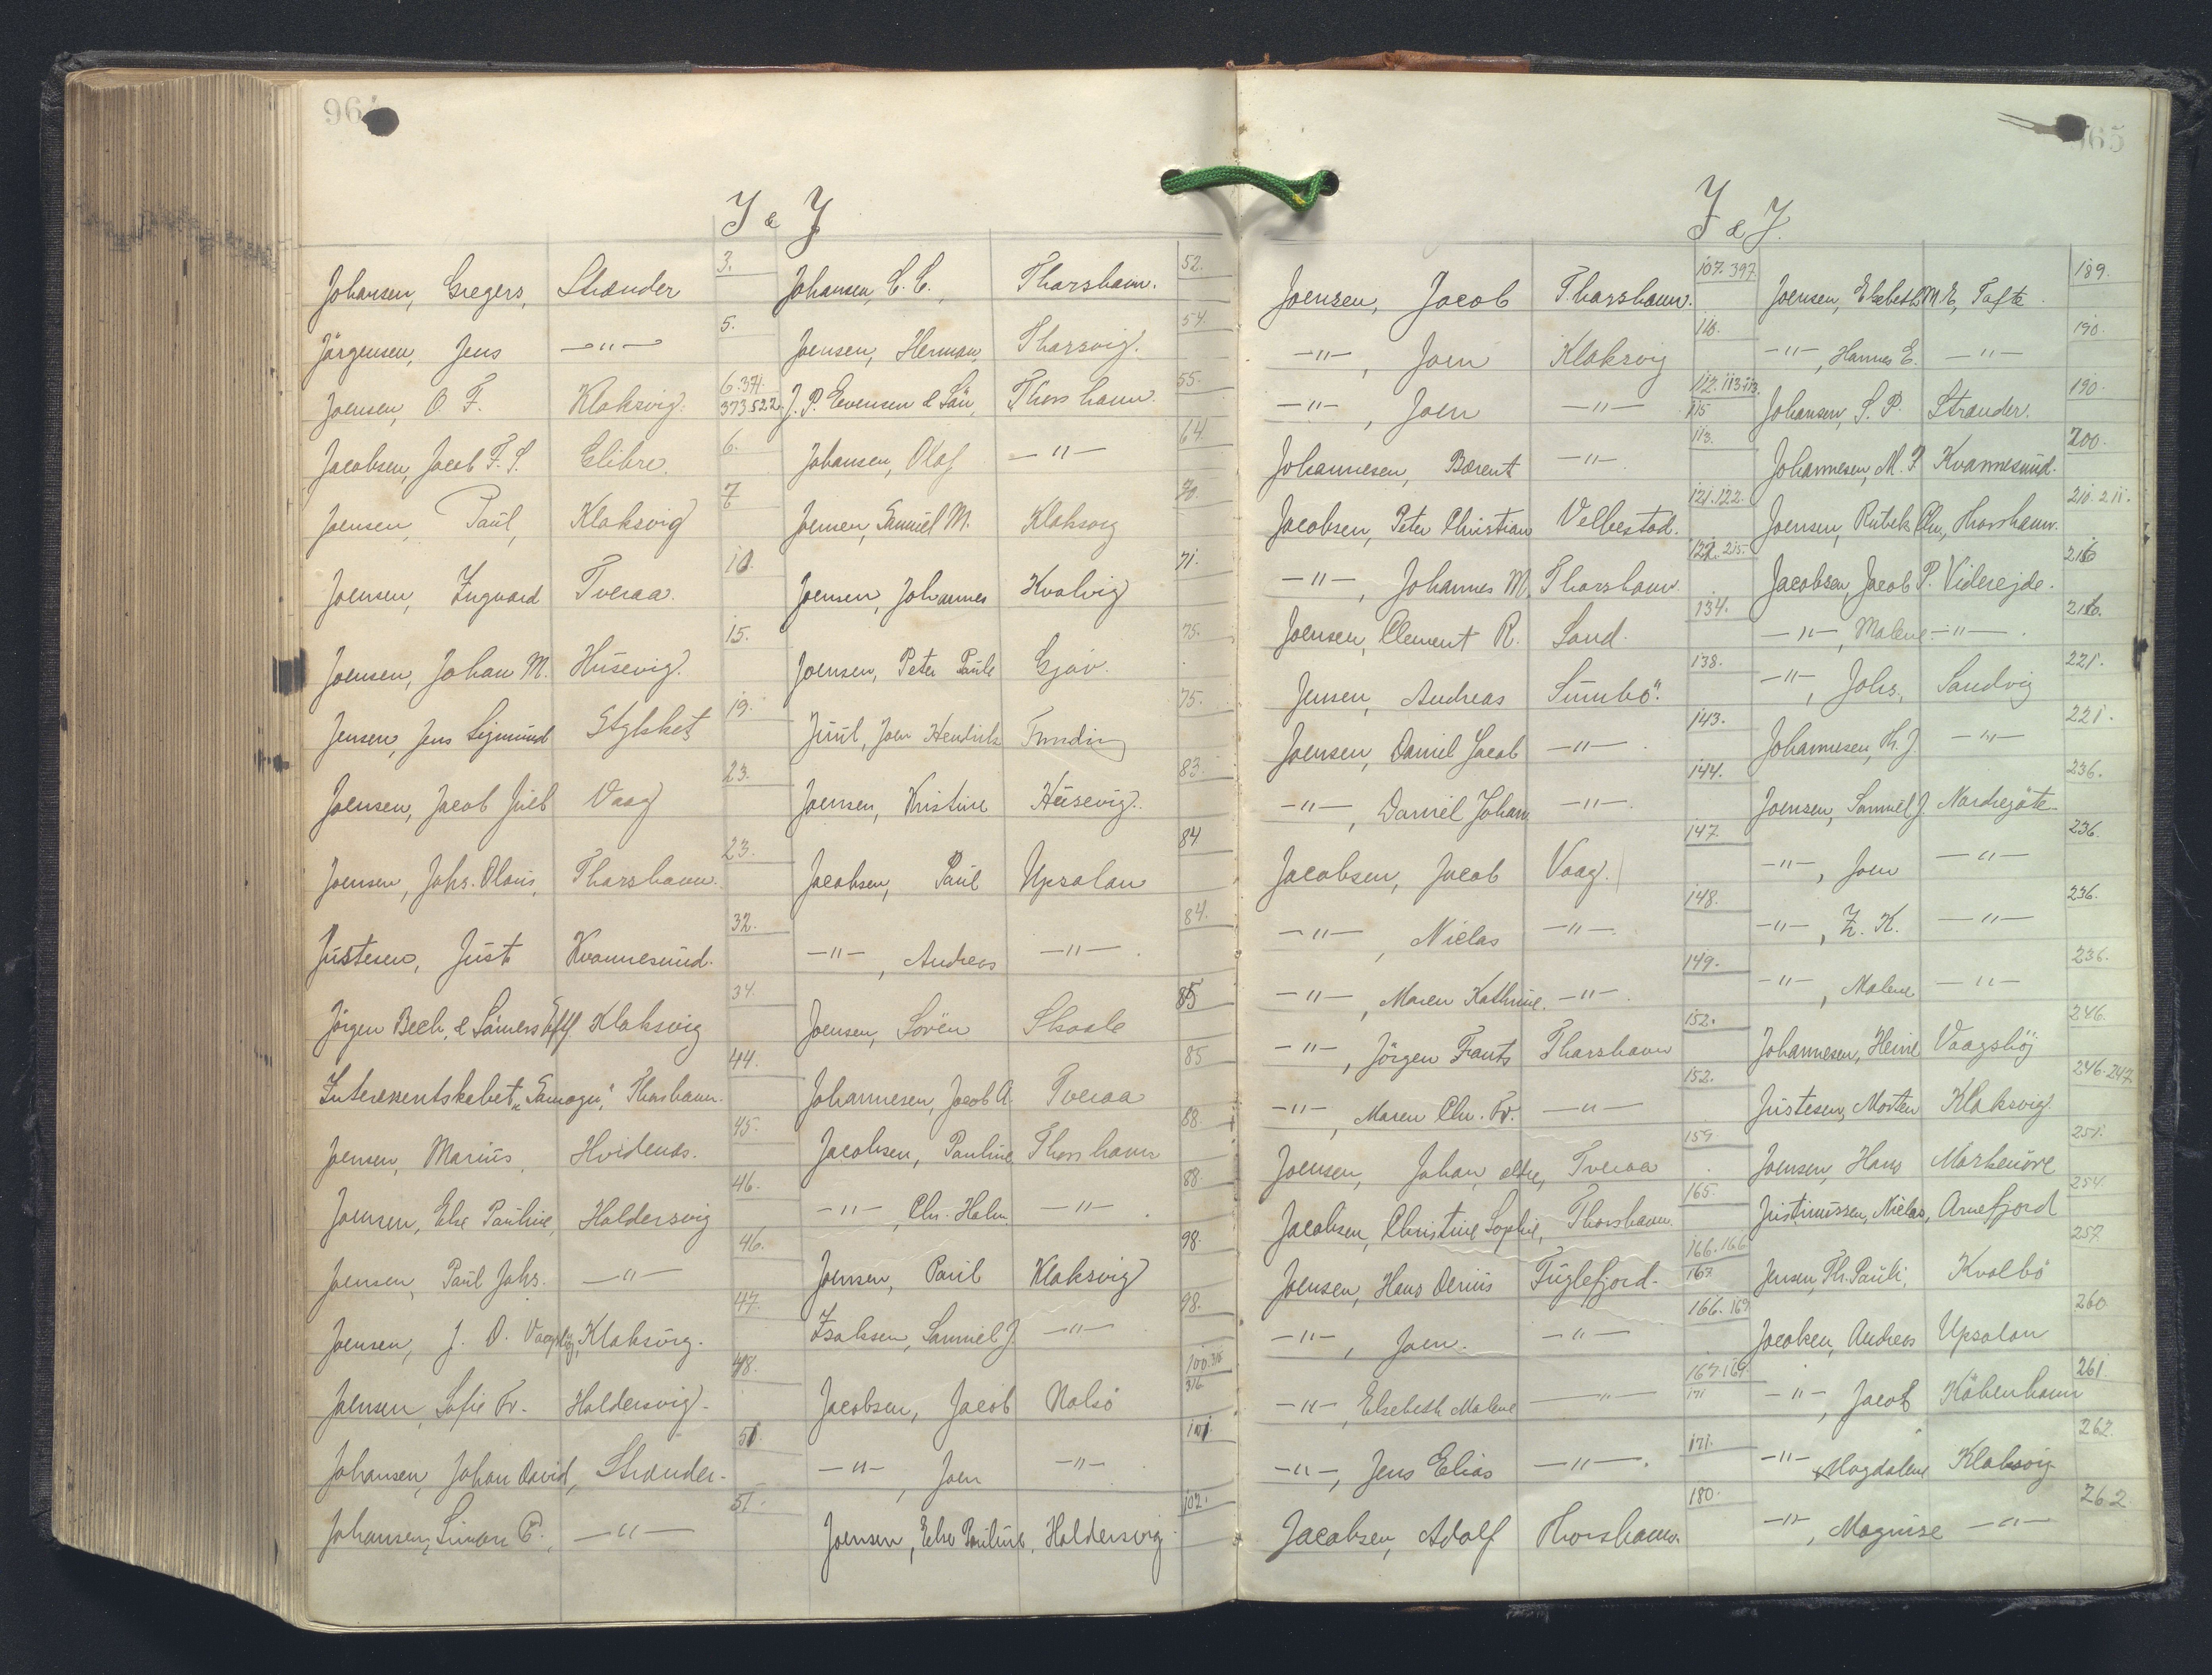 96
I & J
Johansen, Gregers, Strænder 3.
Jörgensen, Jens —"— 5.
Joensen, O. F. Klaksvig. 6. 371. 373. 522.
Jacobsen, Jacob F. S. Elibre. 6.
Joensen, Paul, Klaksvig 7
Joensen, Ingvard Tveraa. 10.
Joensen, Johan M. Húsevig. 15.
Jensen, Jens Sigmund 19.
Joensen, Jacob Juel Vaag 23.
Joensen, Johs. Olaus, Thorshavn. 23.
Justesen, Just Kvannesund. 32.
Jörgen Bech & Sönners Eftf. Klaksvig 34.
Interessentskabet Thorshavn. 44.
Joensen, Marius, Hvidenæs. 45.
Joensen, Else Pauline, Haldersvig 46.
Joensen, Paul Johs. —"— 46.
Joensen, J. O. Klaksvig. 47.
Joensen, Sofie Fr. Haldersvig. 48.
Johansen, Johan David, Strænder. 51.
Johansen, Simon P., —"— 51.
Johansen, C. C., Thorshavn. 52.
Joensen, Herman, Thorsvig. 54.
J. P. Evensen & Sön, Thorshavn. 55.
Johansen, Olaf —"— 64.
Joensen, Samuel M. Klaksvig 70.
Joensen, Johannes Kvalvig 71.
Joensen, Peter Paule Gjov. 75.
Juul, Joen Hendrik Funding 75.
Joensen, Kristine Húsevig. 83.
Jacobsen, Paul Upsalan 84
—"—, Andreas —"—. 84.
Joensen, Sorën Skaale 85
Johannesen, Jacob A. Tveraa 85
Jacobsen, Pauline Thorshavn 88.
—"—, Chr. Holm —"—. 88.
Joensen, Paul Klaksvig 98.
Isaksen, Samuel J. —"— 98.
Jacobsen, Jacob Nolsö 100. 316 316
—"—, Joen —"— 101.
Joensen, Else Pauline, Haldersvig 102.
965
I & J.
Joensen, Jacob Thorshavn. 107. 397.
—"—, Joen Klaksvig 110.
—"—, Joen —"— 112. 113. 113. 115
Johannesen, Bærent —"— 113.
Jacobsen, Peter Christian Velbestad. 121. 122.
—"—, Johannes M. Thorshavn 122. 215.
Joensen, Clement R. Sand. 134.
Jensen, Andreas Sumbö. 138.
Joensen, Daniel Jacob —"—. 143.
—"—, Daniel Johan —"—. 144.
Jacobsen, Jacob Vaag. 147.
—"—, Nielas —"—. 148.
—"—, Maren Kathrine. —"—. 149.
—"—, Jörgen Frants Thorshavn 152.
—"—, Maren Chr. Fr. —"— 152.
Joensen, Johan, Tveraa 159.
Jacobsen, Christine Sophie, Thorshavn. 165.
Joensen, Hans Derius Fuglefjord. 166. 166 167
—"—, Joen. —"— 166. 169
—"—, Elsebeth Malene —"— 167. 169 171
—"—, Jens Elias —"—. 171.
Jacobsen, Adolf Thorshavn. 180.
Joensen, Elsebeth M. E, Tofte. 189.
—"—, Hannes E. —"— 190.
Johansen, S. P. Strænder. 190.
Johannesen, M. J Kvannesund. 200.
Joensen, Rubek Chr., Thorshavn. 210. 211.
Jacobsen, Jacob P. Viderejde. 216
—"—, Malene —"—. 216.
—"—, Johs, Sandvig 221.
Johannesen, Th. J. —"— 221.
Joensen, Samuel J. Nordregöte 236.
—"—, Joen —"— 236.
—"—, Z. K. —"— 236.
—"—, Malene —"— 236.
Johannesen, Heine Vaagshöj 246.
Justesen, Morten Klaksvig. 246. 247
Joensen, Hans Morkenöre 251.
Justinussen, Nielas, Arnefjord 254.
Jensen, Th. Pauli, Kvalbö 257
Jacobsen, Andreas Upsalan 260
—"—, Jacob Köbenhavn 261.
—"—, Magdalene Klaksvig 262.
—"—, Magnise —"— 262